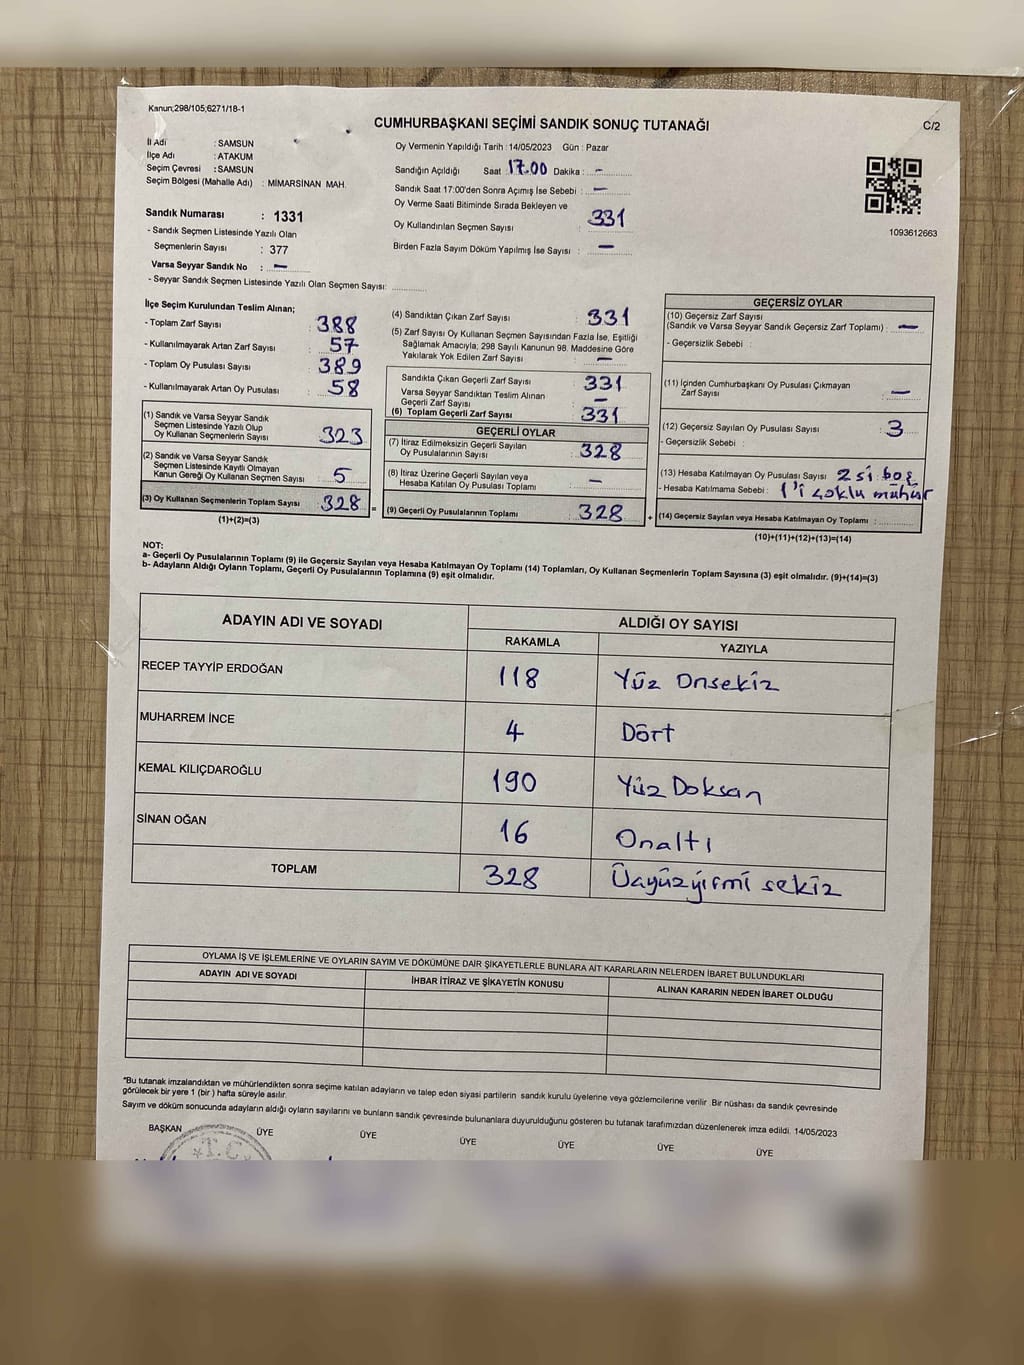 Kanun;298/105;6271/18-1
CUMHURBAŞKANI SEÇİMİ SANDIK SONUÇ TUTANAĞI
C/2
İl Adı : SAMSUN
İlçe Adı : ATAKUM
Seçim Çevresi : SAMSUN
Seçim Bölgesi (Mahalle Adı) : MİMARSİNAN MAH.
Sandık Numarası : 1331
- Sandık Seçmen Listesinde Yazılı Olan
Seçmenlerin Sayısı : 377
Varsa Seyyar Sandık No : –
- Seyyar Sandık Seçmen Listesinde Yazılı Olan Seçmen Sayısı: ..........
Oy Vermenin Yapıldığı Tarih : 14/05/2023 Gün : Pazar
Sandığın Açıldığı Saat : 17.00 Dakika : –
Sandık Saat 17:00'den Sonra Açımış İse Sebebi : –
Oy Verme Saati Bitiminde Sırada Bekleyen ve
Oy Kullandırılan Seçmen Sayısı : 331
Birden Fazla Sayım Döküm Yapılmış İse Sayısı : –
1093612663
İlçe Seçim Kurulundan Teslim Alınan;
- Toplam Zarf Sayısı : 388
- Kullanılmayarak Artan Zarf Sayısı : 57
- Toplam Oy Pusulası Sayısı : 389
- Kullanılmayarak Artan Oy Pusulası : 58
(1) Sandık ve Varsa Seyyar Sandık
Seçmen Listesinde Yazılı Olup
Oy Kullanan Seçmenlerin Sayısı : 323
(2) Sandık ve Varsa Seyyar Sandık
Seçmen Listesinde Kayıtlı Olmayan
Kanun Gereği Oy Kullanan Seçmen Sayısı : 5
(3) Oy Kullanan Seçmenlerin Toplam Sayısı : 328 =
(1)+(2)=(3)
(4) Sandıktan Çıkan Zarf Sayısı : 331
(5) Zarf Sayısı Oy Kullanan Seçmen Sayısından Fazla İse, Eşitliği
Sağlamak Amacıyla; 298 Sayılı Kanunun 98. Maddesine Göre
Yakılarak Yok Edilen Zarf Sayısı : –
Sandıkta Çıkan Geçerli Zarf Sayısı : 331
Varsa Seyyar Sandıktan Teslim Alınan
Geçerli Zarf Sayısı : –
(6) Toplam Geçerli Zarf Sayısı : 331
GEÇERLİ OYLAR
(7) İtiraz Edilmeksizin Geçerli Sayılan
Oy Pusulalarının Sayısı : 328
(8) İtiraz Üzerine Geçerli Sayılan veya
Hesaba Katılan Oy Pusulası Toplamı : –
(9) Geçerli Oy Pusulalarının Toplamı : 328 +
GEÇERSİZ OYLAR
(10) Geçersiz Zarf Sayısı
(Sandık ve Varsa Seyyar Sandık Geçersiz Zarf Toplamı) : –
- Geçersizlik Sebebi :
(11) İçinden Cumhurbaşkanı Oy Pusulası Çıkmayan
Zarf Sayısı : –
(12) Geçersiz Sayılan Oy Pusulası Sayısı : 3
- Geçersizlik Sebebi :
(13) Hesaba Katılmayan Oy Pusulası Sayısı 2 si boş
- Hesaba Katılmama Sebebi : 1'i çoklu mühür
(14) Geçersiz Sayılan veya Hesaba Katılmayan Oy Toplamı : ..........
(10)+(11)+(12)+(13)=(14)
NOT:
a- Geçerli Oy Pusulalarının Toplamı (9) ile Geçersiz Sayılan veya Hesaba Katılmayan Oy Toplamı (14) Toplamları, Oy Kullanan Seçmenlerin Toplam Sayısına (3) eşit olmalıdır. (9)+(14)=(3)
b- Adayların Aldığı Oyların Toplamı, Geçerli Oy Pusulalarının Toplamına (9) eşit olmalıdır.
ADAYIN ADI VE SOYADI ALDIĞI OY SAYISI
RAKAMLA YAZIYLA
RECEP TAYYİP ERDOĞAN 118 Yüz Onsekiz
MUHARREM İNCE 4 Dört
KEMAL KILIÇDAROĞLU 190 Yüz Doksan
SİNAN OĞAN 16 Onaltı
TOPLAM 328 Üçyüzyirmi sekiz
OYLAMA İŞ VE İŞLEMLERİNE VE OYLARIN SAYIM VE DÖKÜMÜNE DAİR ŞİKAYETLERLE BUNLARA AİT KARARLARIN NELERDEN İBARET BULUNDUKLARI
ADAYIN ADI VE SOYADI İHBAR İTİRAZ VE ŞİKAYETİN KONUSU ALINAN KARARIN NEDEN İBARET OLDUĞU
*Bu tutanak imzalandıktan ve mühürlendikten sonra seçime katılan adayların ve talep eden siyasi partilerin sandık kurulu üyelerine veya gözlemcilerine verilir. Bir nüshası da sandık çevresinde
görülecek bir yere 1 (bir) hafta süreyle asılır.
Sayım ve döküm sonucunda adayların aldığı oyların sayılarını ve bunların sandık çevresinde bulunanlara duyurulduğunu gösteren bu tutanak tarafımızdan düzenlenerek imza edildi. 14/05/2023
BAŞKAN ÜYE ÜYE ÜYE ÜYE ÜYE ÜYE
T.C